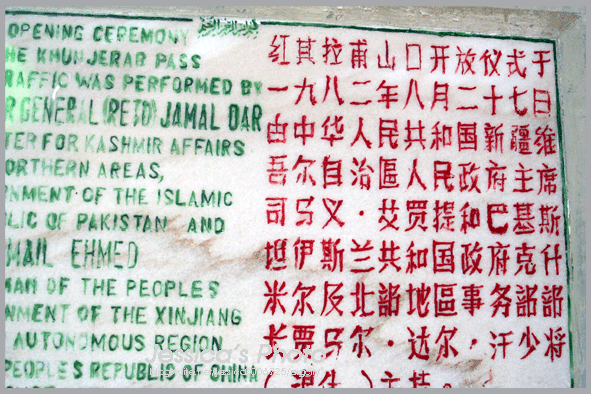 OPENING CEREMONY
HE KHUNJERAB PASS
RAFFIC WAS PERFORMED BY
R GENERAL (RETD) JAMAL DAR
TER FOR KASHMIR AFFAIRS
ORTHERN AREAS,
RNMENT OF THE ISLAMIC
LIC OF PAKISTAN AND
MAIL EHMED
MAN OF THE PEOPLES
NMENT OF THE XINJIANG
AUTONOMOUS REGION
PEOPLES REPUBLIC OF CHINA
红其拉甫山口开放仪式于
一九八二年八月二十七日
由中华人民共和国新疆维
吾尔自治區人民政府主席
司马义·艾贾提和巴基斯
坦伊斯兰共和国政府克什
米尔及北部地區事务部部
长贾马尔·达尔·汗少将
主持。
Jessica's Photo